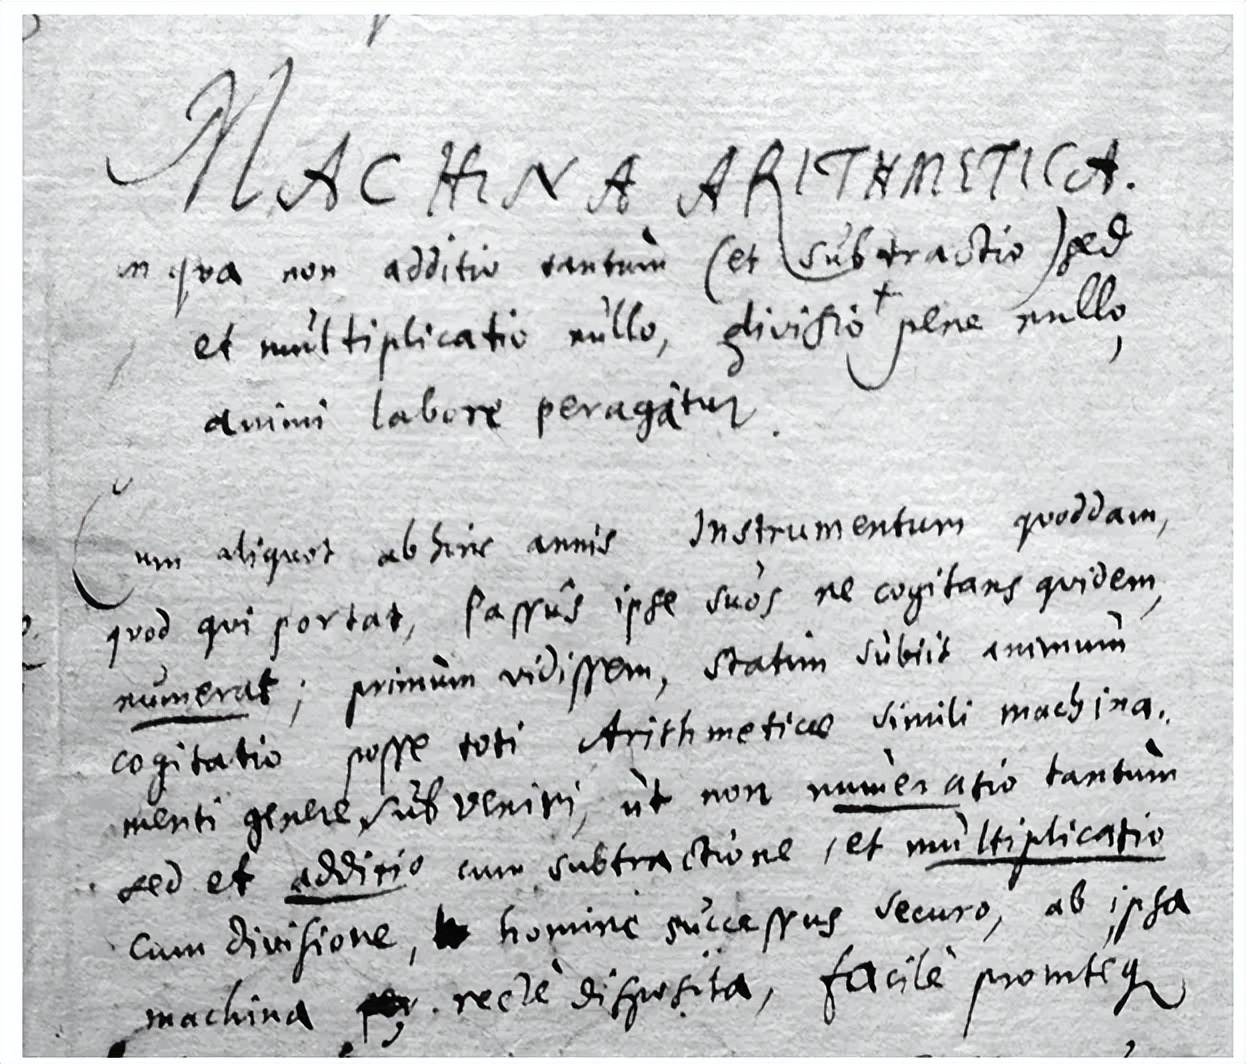 MACHINA ARITHMETICA.
in qva non additio tantùm (et sùbtractio) sed
et mùltiplicatio nùllo, divisio + pene nullo,
animi labore peragatur.
Cum aliquot abhinc annis Instrumentum quoddam,
quod qui portat, passùs ipse suòs ne cogitans quidem,
nùmerat; primùm vidissem, statim sùbiit animùm
cogitatio posse toti Arithmeticæ simili machina-
menti genere sùbveniri, ùt non nùmeratio tantùm
sed et additio cum subtractione, et mùltiplicatio
cum divisione, homine sùccessus securo, ab ipsa
machina rectè disposita, facilè promteq